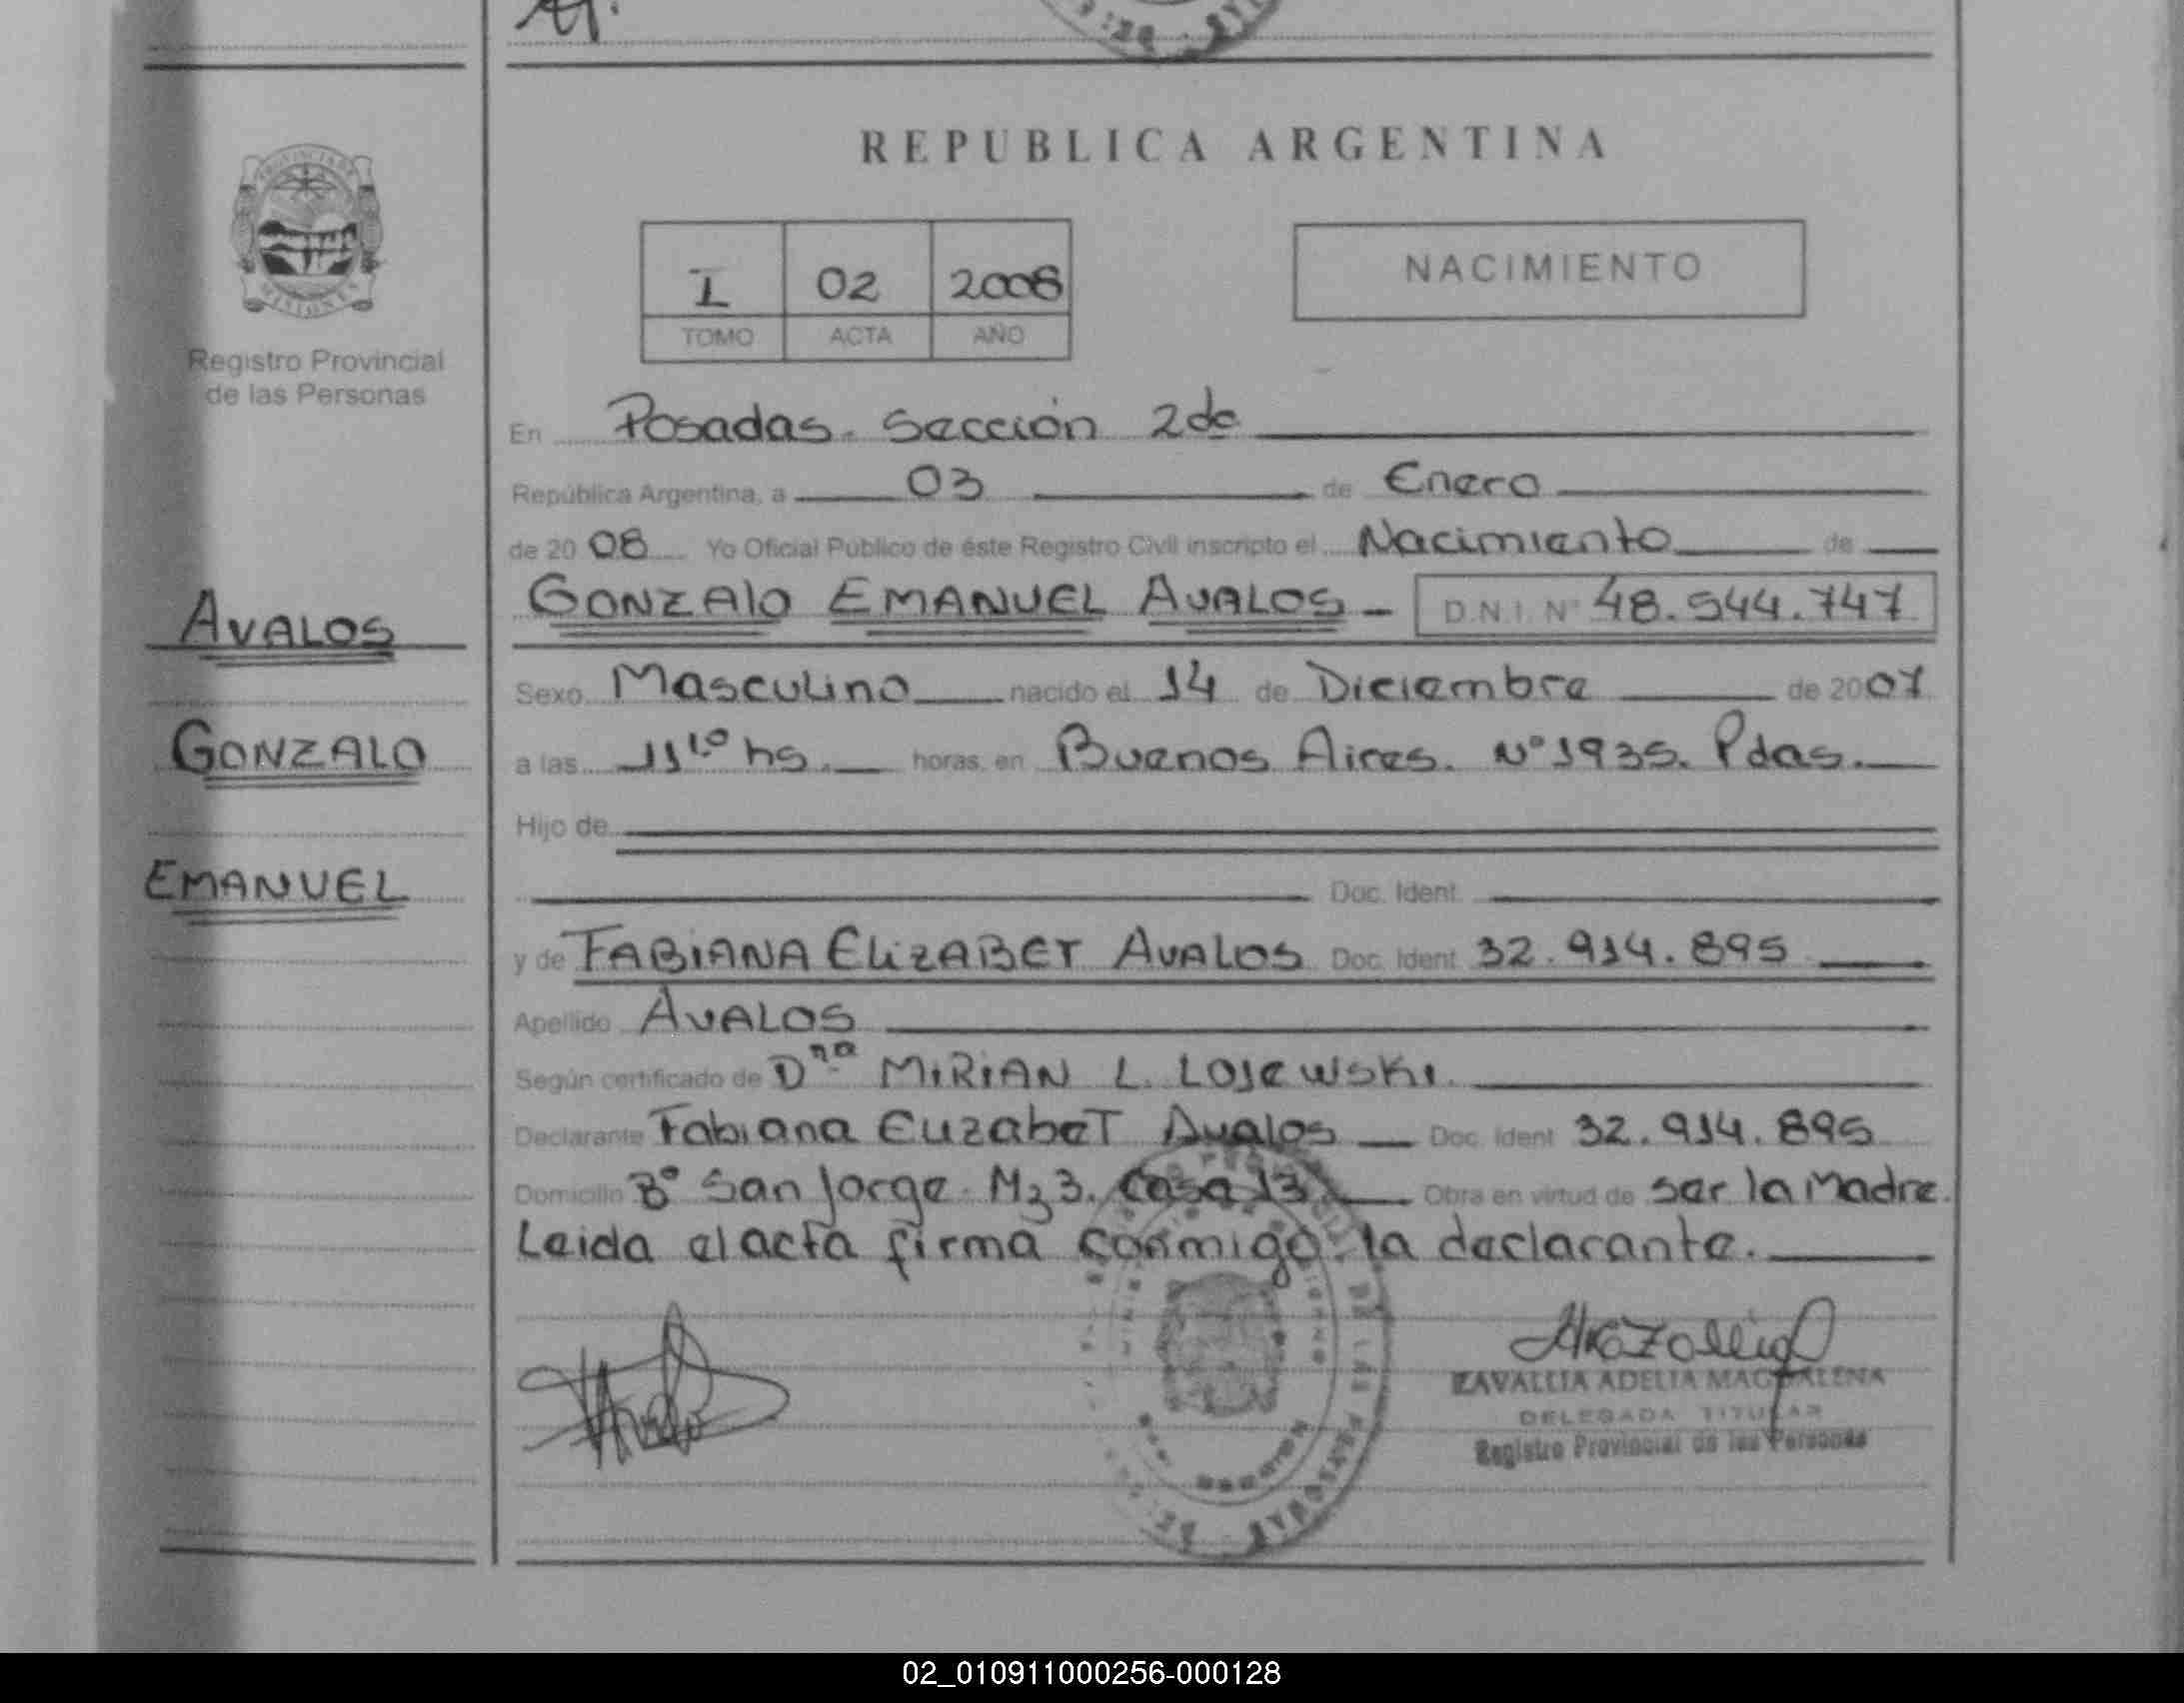 REPUBLICA ARGENTINA
NACIMIENTO
I 02 2008
TOMO ACTA AÑO
Registro Provincial
de las Personas
En Posadas. Sección 2da
República Argentina, a 03 de Enero
de 20 08 Yo Oficial Público de éste Registro Civil inscripto el Nacimiento de
GONZAlO EMANUEL AVALOS - D.N.I. Nº 48.544.747
AVALOS
GONZALO
EMANUEL
Sexo Masculino nacido el 14 de Diciembre de 2007
a las 11¹⁰ hs. horas, en Buenos Aires. Nº 1935. Pdas.
Hijo de
Doc. Ident.
y de FABIANA ElizABET AVALOS Doc. Ident. 32.914.895
Apellido AVALOS
Según certificado de Dra MIRIAN L. LOJEWSKI.
Declarante Fabiana Elizabet Avalos Doc. Ident. 32.914.895
Domicilio Bº San Jorge. Mz 3. Casa 13 Obra en virtud de ser la Madre.
Leida el acta firma conmigo la declarante.
ZAVALLIA ADELIA MAGDALENA
DELEGADA TITULAR
Registro Provincial de las Personas
02_010911000256-000128